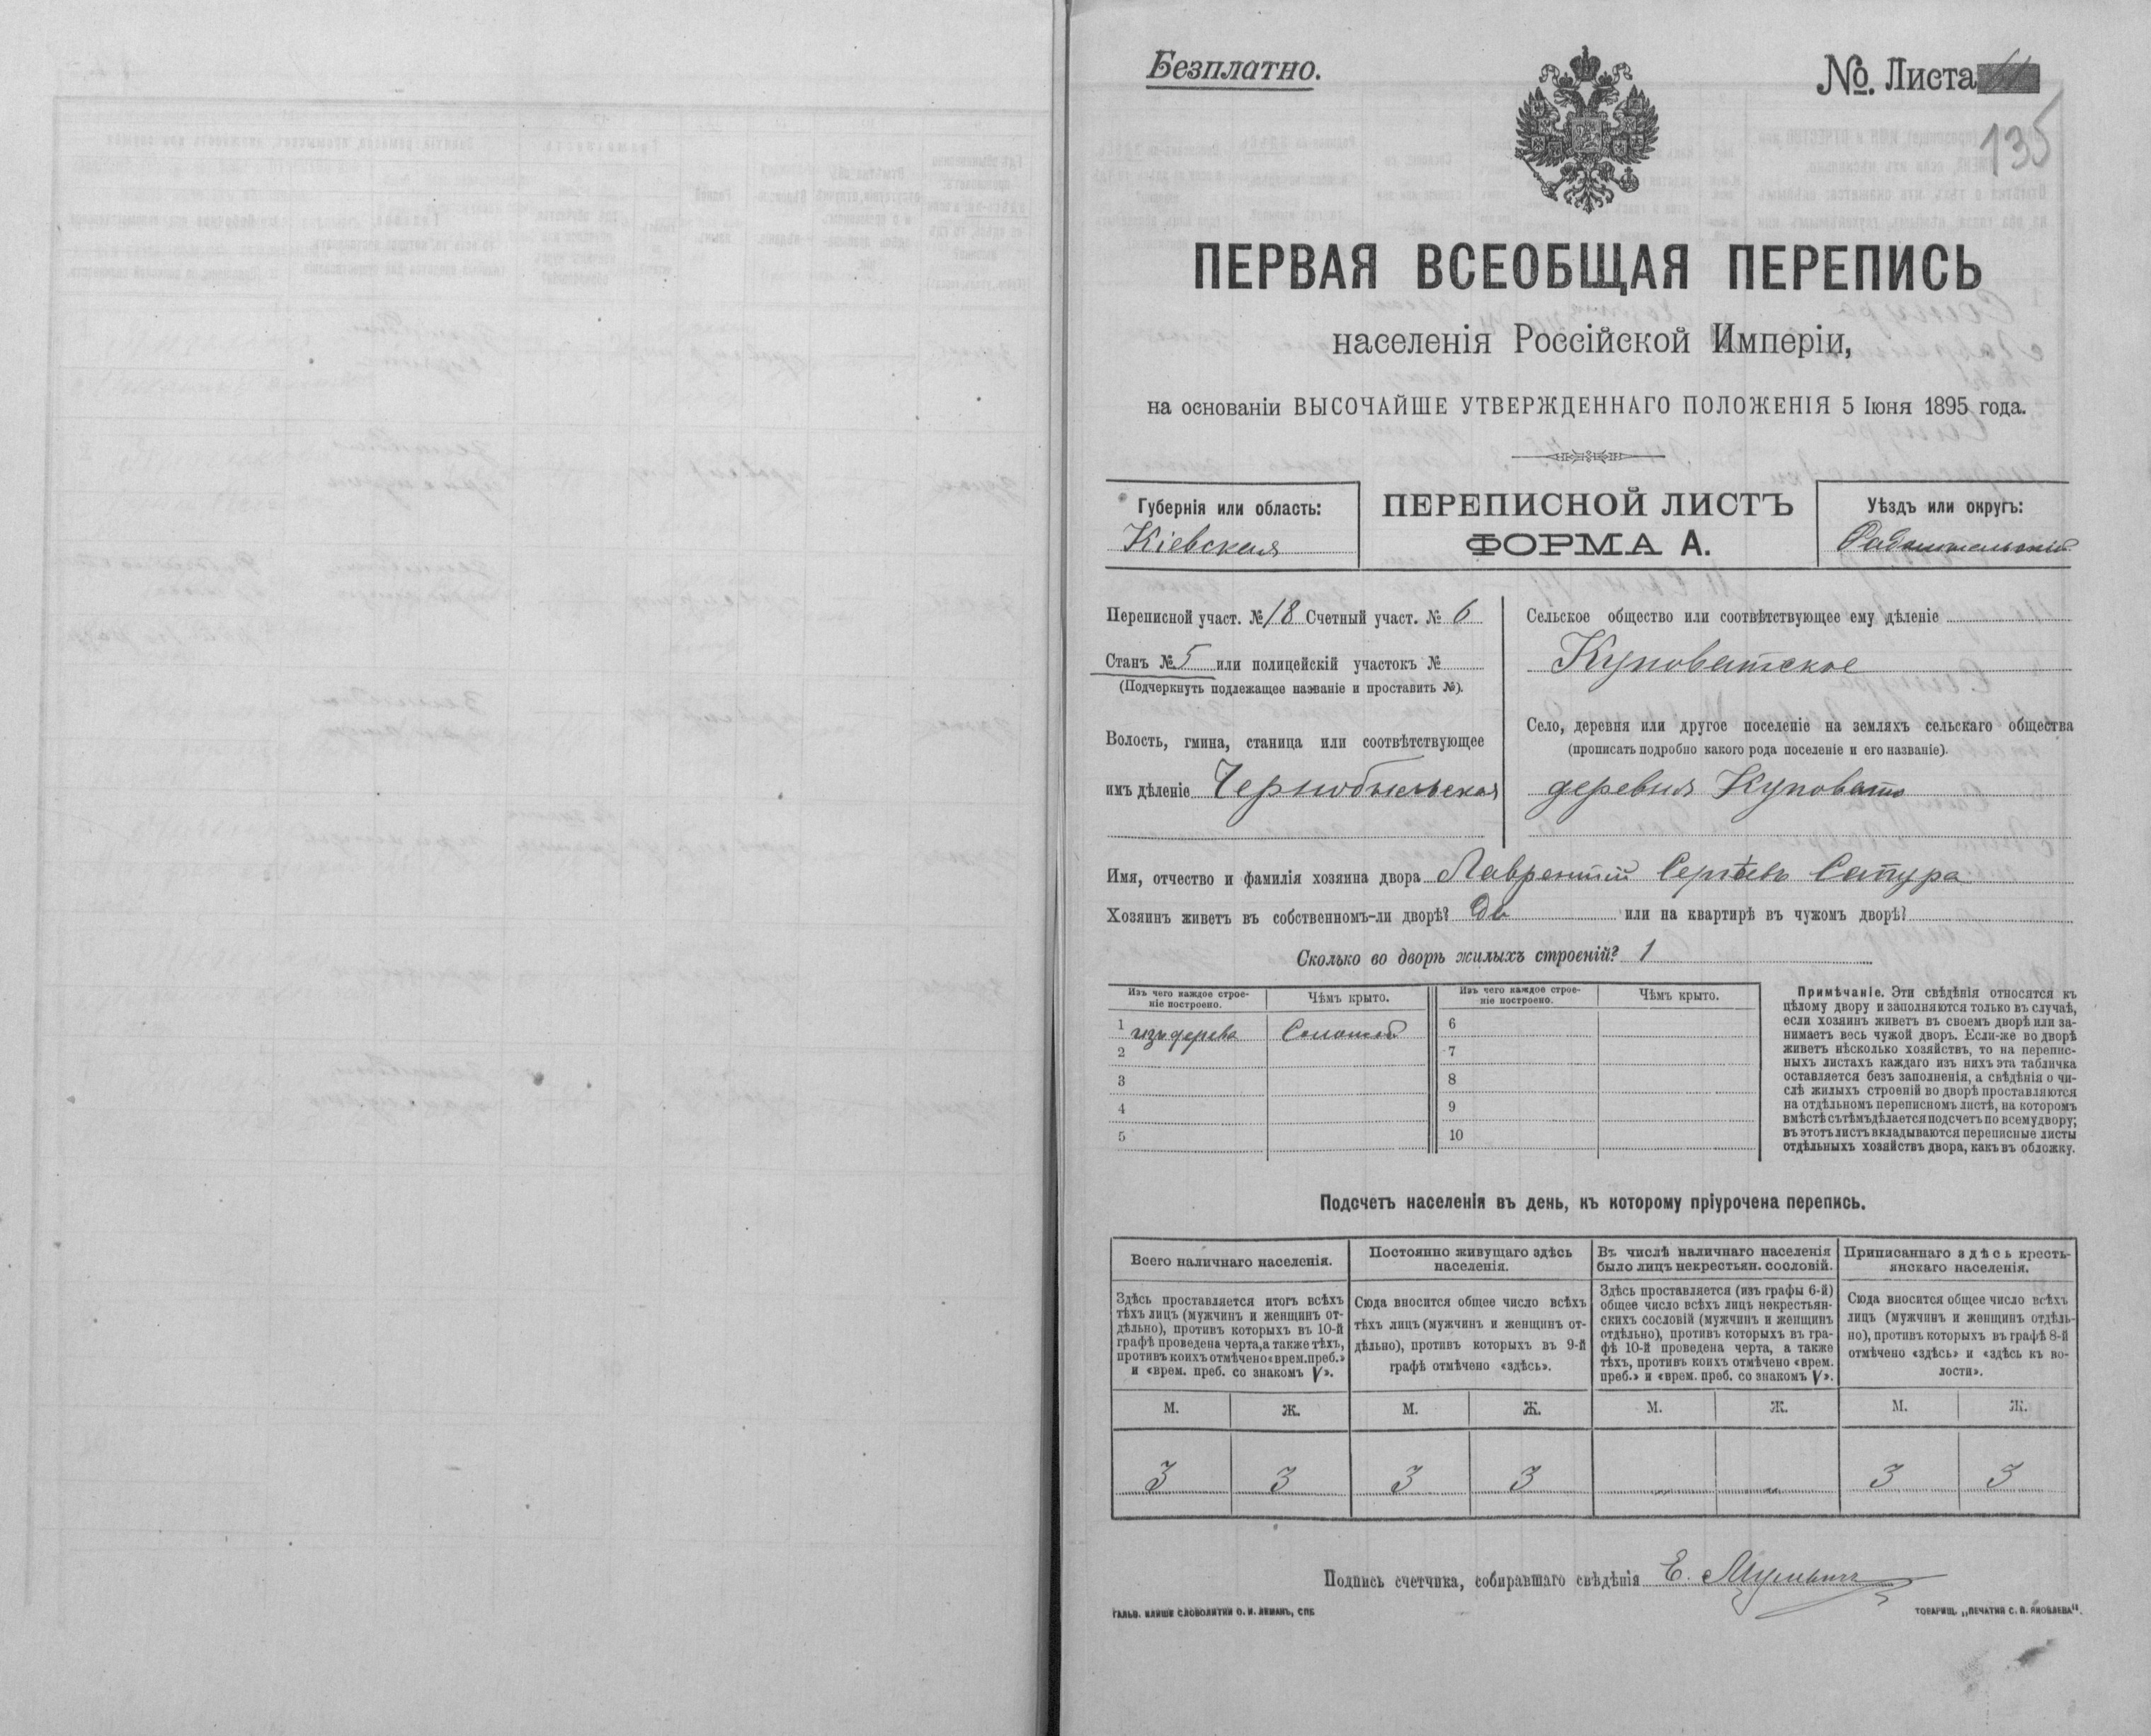 Безплатно.
№ Листа 11
135
ПЕРВАЯ ВСЕОБЩАЯ ПЕРЕПИСЬ
населенія Россійской Имперіи,
на основаніи ВЫСОЧАЙШЕ УТВЕРЖДЕННАГО ПОЛОЖЕНІЯ 5 Іюня 1895 года.
Губернія или область:
Кіевская
ПЕРЕПИСНОЙ ЛИСТЪ
ФОРМА А.
Уѣздъ или округъ:
Радомысльскій
Переписной участ. № 18 Счетный участ. № 6
Станъ № 5 или полицейскій участокъ №
(Подчеркнуть подлежащее названіе и проставить №).
Волость, гмина, станица или соотвѣтствующее
имъ дѣленіе Чернобыльская
Сельское общество или соотвѣтствующее ему дѣленіе
Куповатское
Село, деревня или другое поселеніе на земляхъ сельскаго общества
(прописать подробно какого рода поселеніе и его названіе).
деревня Куповато
Имя, отчество и фамилія хозяина двора Лаврентій Сергѣевъ Сапура
Хозяинъ живетъ въ собственномъ-ли дворѣ? Да или на квартирѣ въ чужомъ дворѣ?
Сколько во дворѣ жилыхъ строеній? 1
Изъ чего каждое строе-
ніе построено.
Чѣмъ крыто.
Изъ чего каждое строе-
ніе построено.
Чѣмъ крыто.
1 изъ дерева Соломой
2
3
4
5
6
7
8
9
10
Примѣчаніе. Эти свѣдѣнія относятся къ
цѣлому двору и заполняются только въ случаѣ,
если хозяинъ живетъ въ своемъ дворѣ или за-
нимаетъ весь чужой дворъ. Если-же во дворѣ
живетъ нѣсколько хозяйствъ, то на перепис-
ныхъ листахъ каждаго изъ нихъ эта табличка
оставляется безъ заполненія, а свѣдѣнія о чи-
слѣ жилыхъ строеній во дворѣ проставляются
на отдѣльномъ переписномъ листѣ, на которомъ
вмѣстѣ съ тѣмъ дѣлается подсчетъ по всему двору;
въ этотъ листъ вкладываются переписные листы
отдѣльныхъ хозяйствъ двора, какъ въ обложку.
Подсчетъ населенія въ день, къ которому пріурочена перепись.
Всего наличнаго населенія.
Здѣсь проставляется итогъ всѣхъ
тѣхъ лицъ (мужчинъ и женщинъ от-
дѣльно), противъ которыхъ въ 10-й
графѣ проведена черта, а также тѣхъ,
противъ коихъ отмѣчено «врем. преб.»
и «врем. преб. со знакомъ V».
Постоянно живущаго здѣсь
населенія.
Сюда вносится общее число всѣхъ
тѣхъ лицъ (мужчинъ и женщинъ от-
дѣльно), противъ которыхъ въ 9-й
графѣ отмѣчено «здѣсь».
Въ числѣ наличнаго населенія
было лицъ некрестьян. сословій.
Здѣсь проставляется (изъ графы 6-й)
общее число всѣхъ лицъ некрестьян-
скихъ сословій (мужчинъ и женщинъ
отдѣльно), противъ которыхъ въ гра-
фѣ 10-й проведена черта, а также
тѣхъ, противъ коихъ отмѣчено «врем.
преб.» и «врем. преб. со знакомъ V».
Приписаннаго здѣсь кресть-
янскаго населенія.
Сюда вносится общее число всѣхъ
лицъ (мужчинъ и женщинъ отдѣль-
но), противъ которыхъ въ графѣ 8-й
отмѣчено «здѣсь» и «здѣсь къ во-
лости».
М. Ж. М. Ж. М. Ж. М. Ж.
3 3 3 3 3 3
Подпись счетчика, собиравшаго свѣдѣнія Е.
ГАЛЬВ. КЛИШЕ СЛОВОЛИТНИ О. И. ЛЕМАНЪ, СПБ.
ТОВАРИЩ. „ПЕЧАТНЯ С. П. ЯКОВЛЕВА".